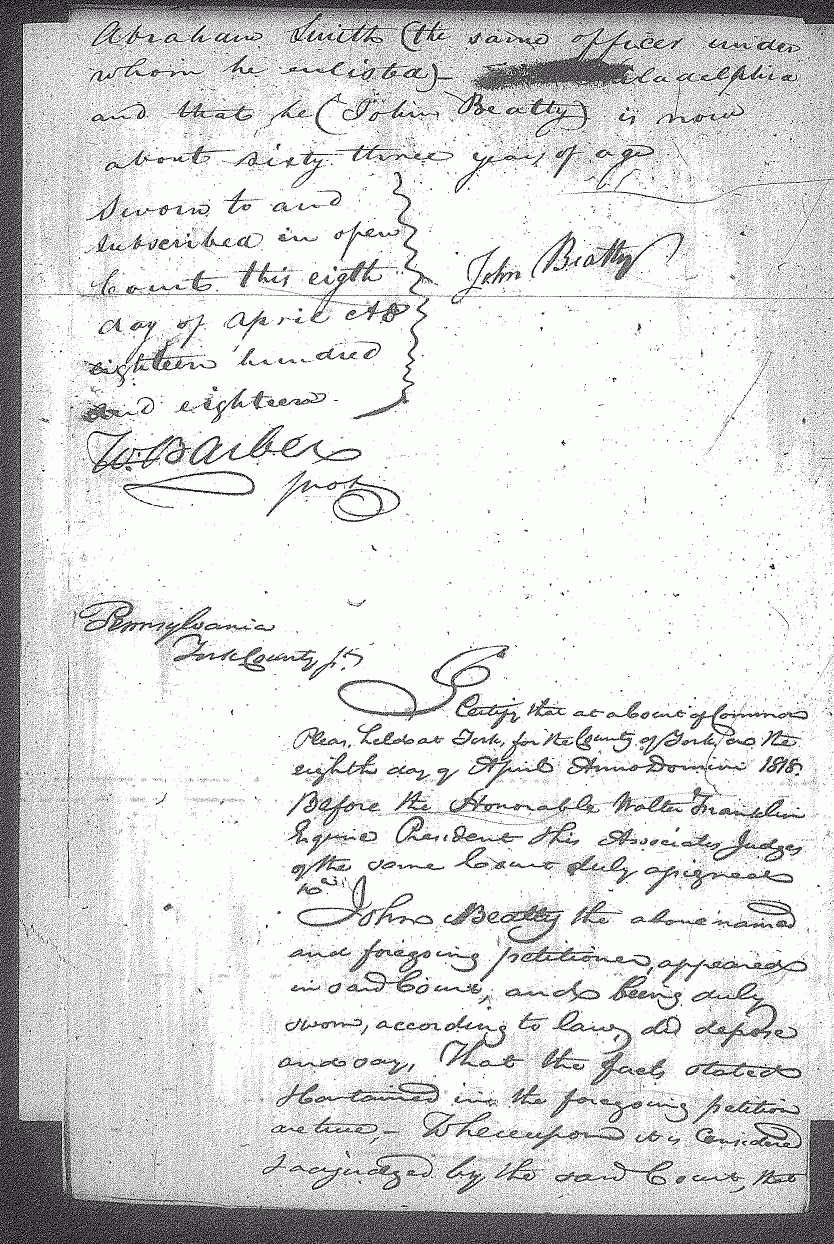 Abraham Smith (the same officer under
whom he enlisted) - ladelphia
and that he (John Beatty) is now
about sixty three years of age
Sworn to and
subscribed in open
Court this eigth
day of April AD
eighteen hundred
and eighteen.
John Beatty
W. Barber
proth
Pennsylvania
York County ss
I Certify that at a Court of Common
Pleas, held at York, for the County of York, on the
eighth day of April Anno Domini 1818.
Before the Honorable Walter Franklin
Esquire President & his Associates Judges
of the same Court duly assigned
&c
John Beatty the above named
and foregoing petitioner, appeared
in said Court, and being duly
sworn, according to law, did depose
and say, That the facts stated
& contained in the foregoing petition
are true, - Whereupon it is Considered
& adjudged by the said Court, that